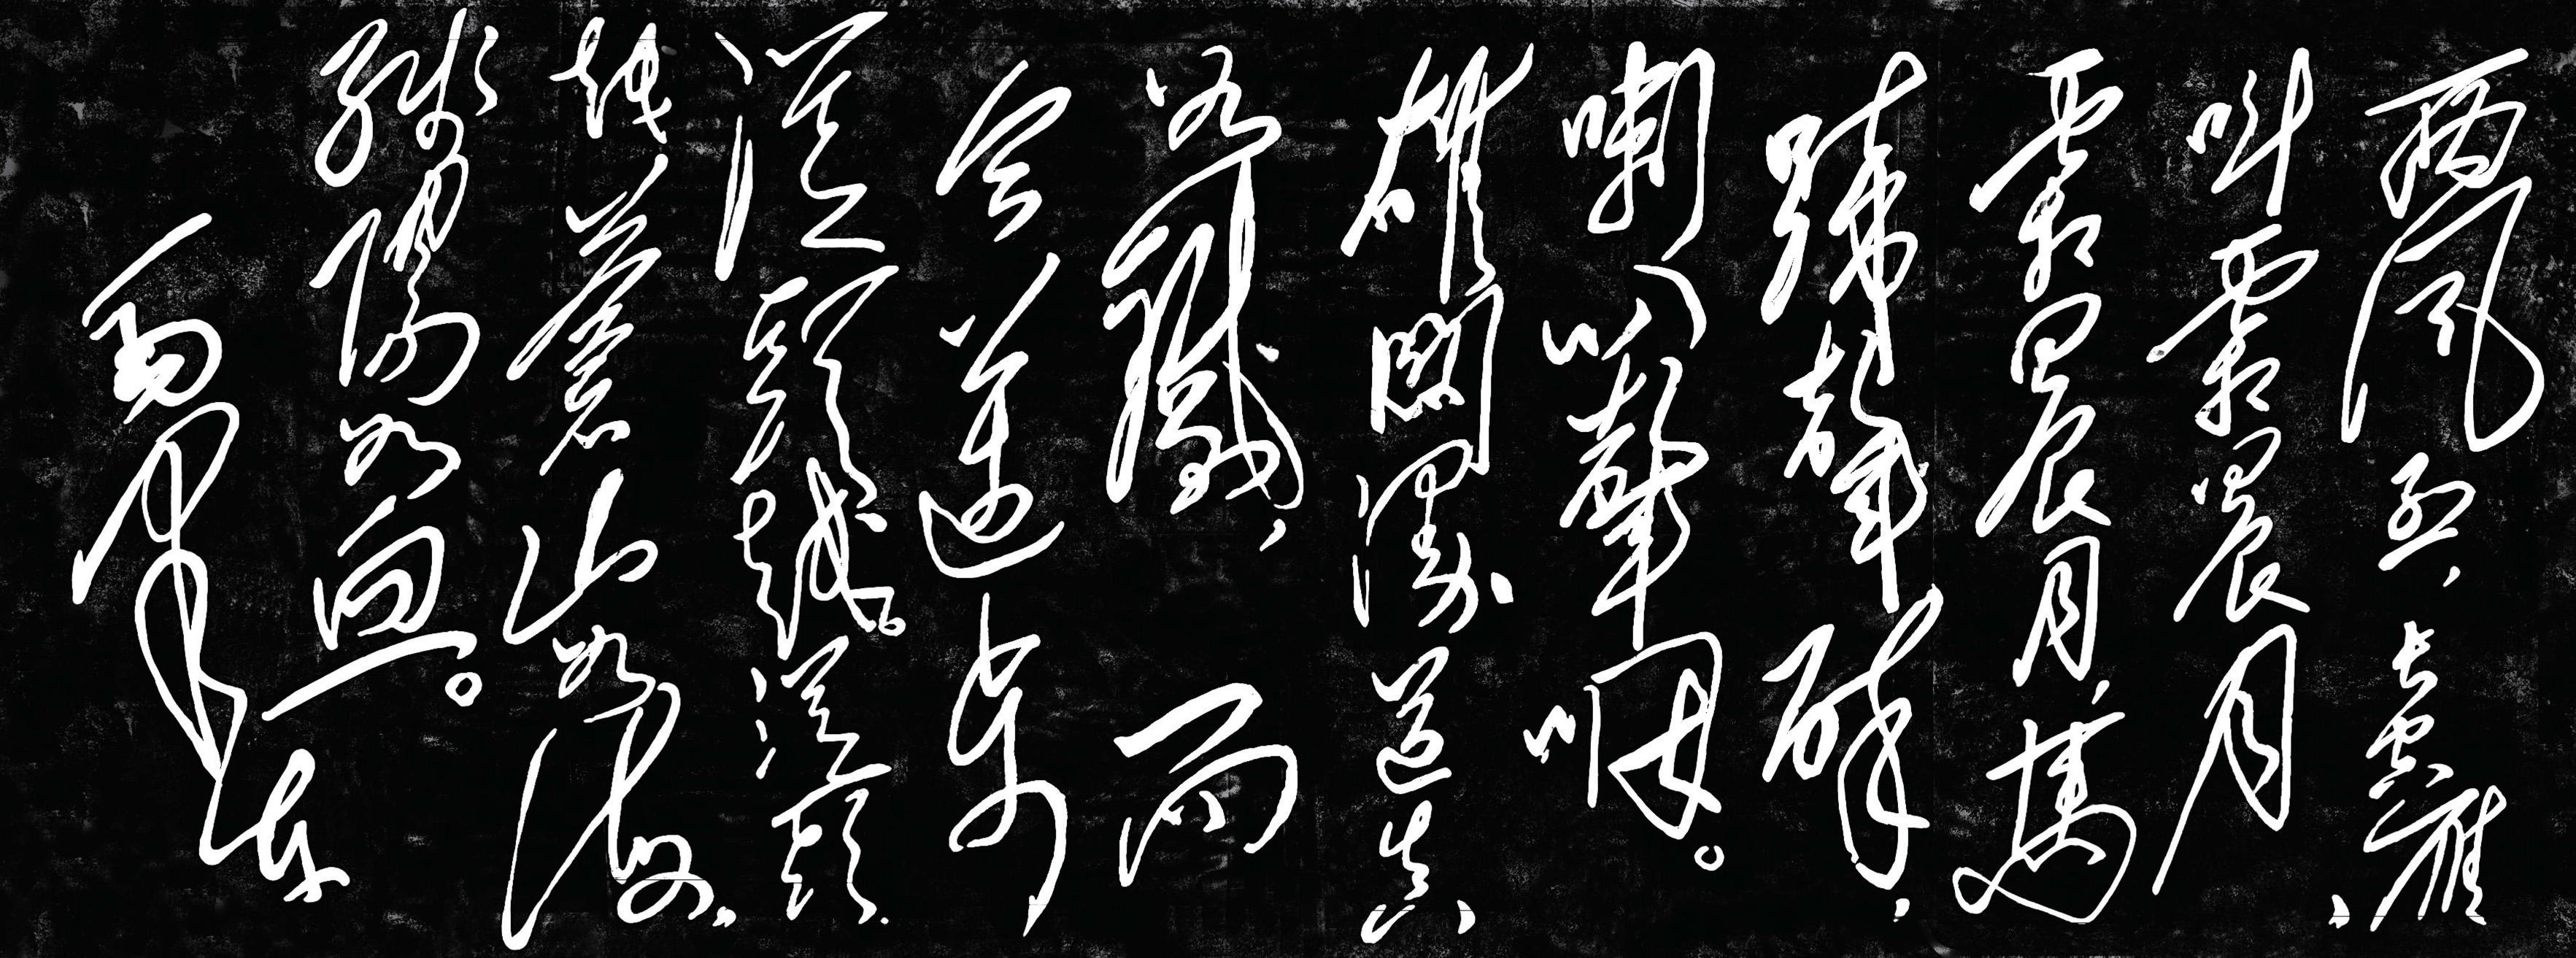 西風烈,長空雁、
叫霜晨月
霜晨月,馬
蹄聲碎,
喇叭聲咽。
雄關漫道真
如鐵,而
今邁步
從頭越。從頭
越,蒼山如海,
殘陽如血。
毛澤東